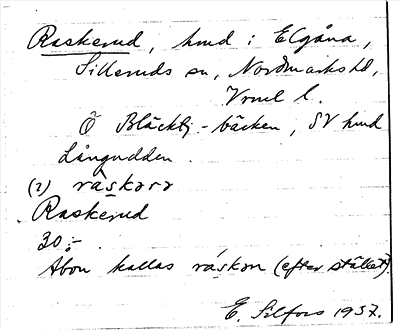 Raskerud, hmd i Elgåna,
Silleruds sn, Nordmarks hd,
Vrml l.
Ö Bläcktj.-bäcken, SV hmd
Långudden.
(2)
Raskerud
30:-
Åbon kallas råskarn (efter stället).
E. Silfors 1937.